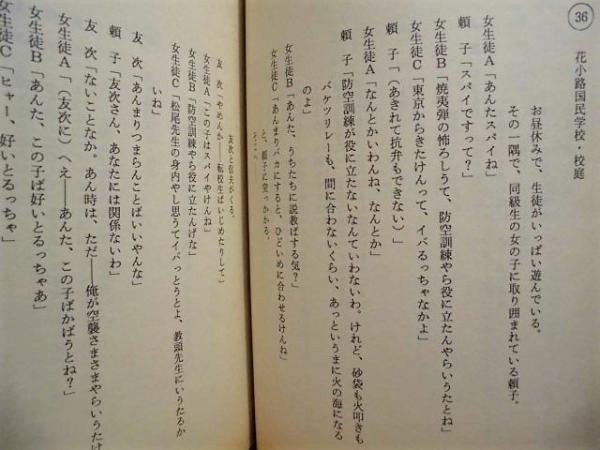 36
花小路国民学校・校庭
お昼休みで、生徒がいっぱい遊んでいる。
その一隅で、同級生の女の子に取り囲まれている頼子。
女生徒A「あんたスパイね」
頼　子「スパイですって?」
女生徒B「焼夷弾の怖ろしうて、防空訓練やら役に立たんやらいうたとね」
女生徒C「東京からきたけんって、イバるっちゃなかよ」
頼　子「(あきれて抗弁もできない)」
女生徒A「なんとかいわんね、なんとか」
頼　子「防空訓練が役に立たないなんていわないわ。けれど、砂袋も火叩きも
バケツリレーも、間に合わないくらい、あっというまに火の海になる
のよ」
女生徒B「あんた、うちたちに説教ばする気?」
女生徒C「あんまりバカにすると、ひどいめに合わせるけんね」
と、頼子に突っかかる。
そこへ
友次と信夫がくる。
友　次「やめんか――転校生ばいじめたりして」
女生徒A「この子はスパイやけんね」
女生徒B「防空訓練やら役に立たんげな」
女生徒C「松尾先生の身内やし思うてイバっとうとよ、教頭先生にいうたるか
いね」
友　次「あんまりつまらんことばいいやんな」
頼　子「友次さん、あなたには関係ないわ」
友　次「ないことなか。あん時は、ただ――俺が空襲さまさまやらいうたけ
女生徒A「(友次に)へえ――あんた、この子ばかばうとね?」
女生徒B「あんた、この子ば好いとるっちゃあ」
女生徒C「ヒャー、好いとるっちゃ」